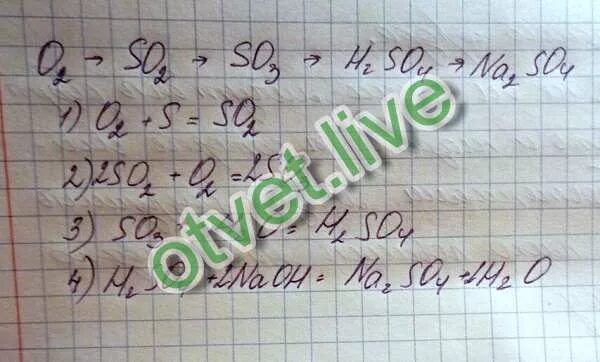 O₂ → SO₂ → SO₃ → H₂SO₄ → Na₂SO₄
1) O₂ + S = SO₂
2) 2SO₂ + O₂ = 2S
3) SO₃ O = H₂SO₄
4) H₂S +2NaOH = Na₂SO₄ + 2H₂O
otvet.live